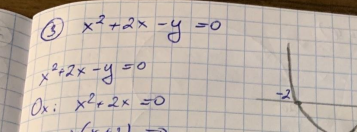 ③ x² + 2x - y = 0
x² + 2x - y = 0
Ox: x² + 2x = 0
-2